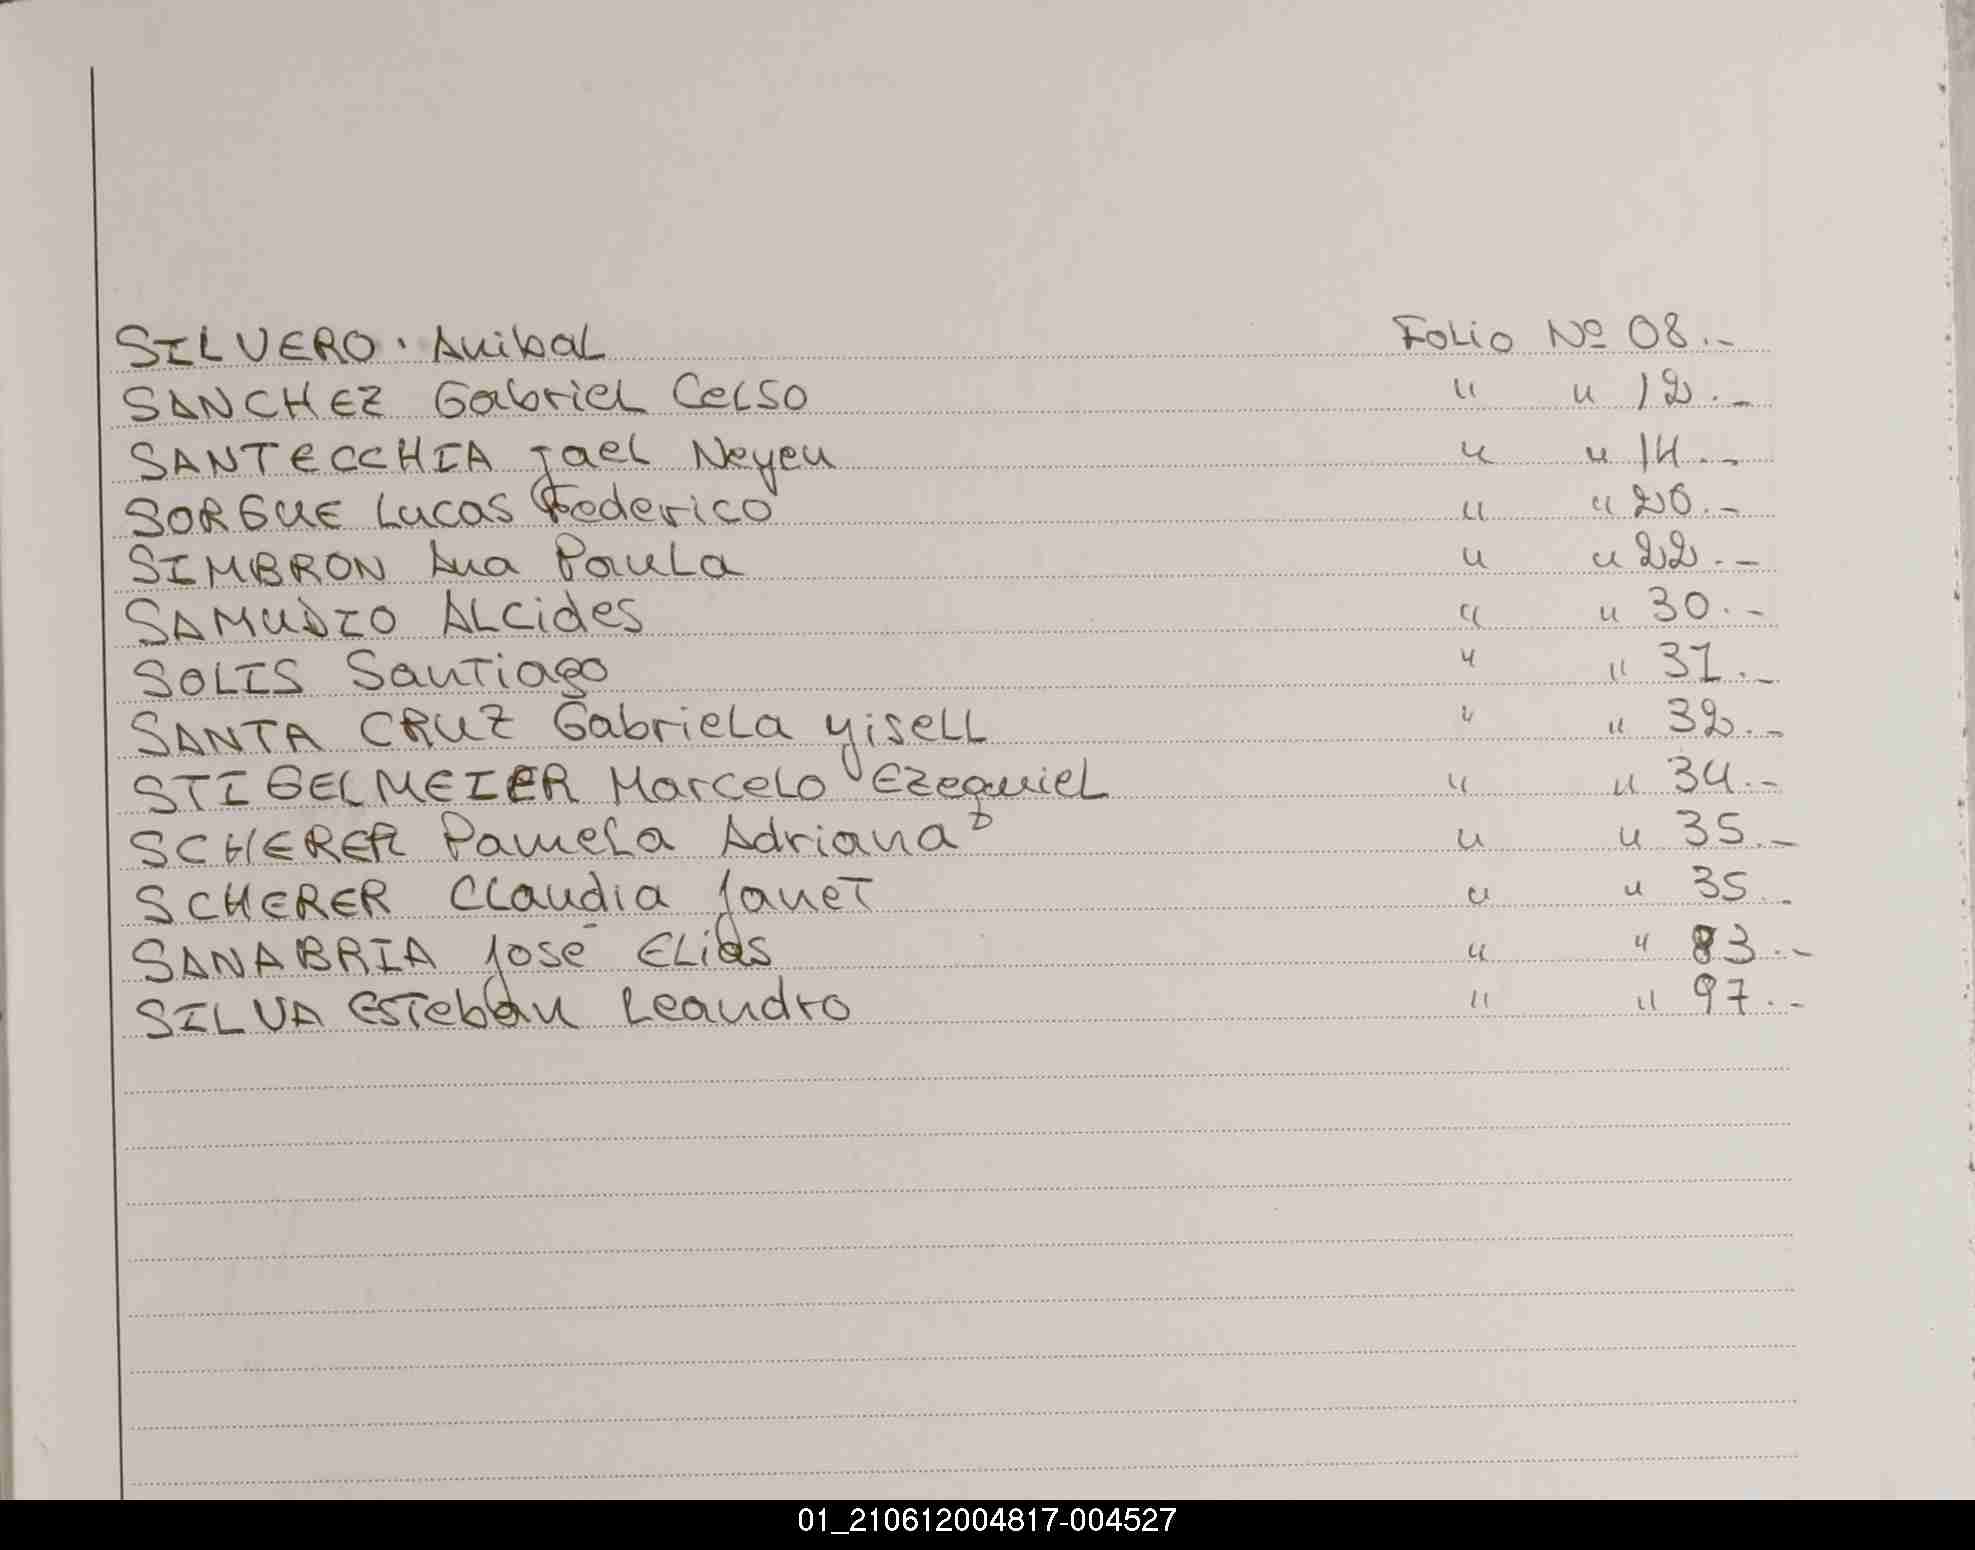 SILVERO. Anibal Folio Nº 08.-
SANCHEZ Gabriel Celso " " 12.-
SANTECCHIA Jael Neyen " " 14.-
SORGUE Lucas Federico " " 20.-
SIMBRON Ana Paula " " 22.-
SAMUDIO Alcides " " 30.-
SOLIS Santiago " " 31.-
SANTA CRUZ Gabriela Yisell " " 32.-
STIGELMEIER Marcelo Ezequiel " " 34.-
SCHERER Pamela Adriana " " 35.-
SCHERER Claudia Janet " " 35.-
SANABRIA José Elias " " 83.-
SILVA Esteban Leandro " " 97.-
01_210612004817-004527